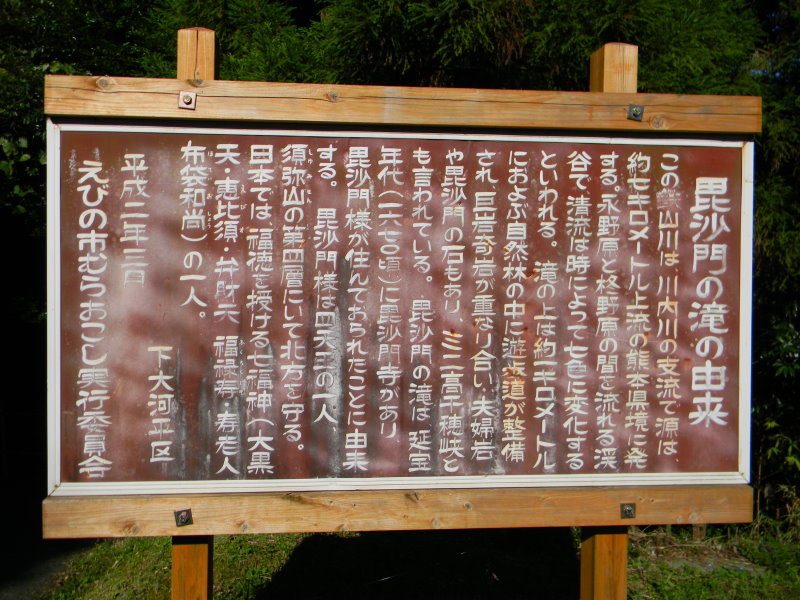 毘沙門の滝の由来
この鉄山川は、川内川の支流で源は、
約七キロメートル上流の熊本県境に発
する。永野原と柊野原の間を流れる渓
谷で清流は時によって七色に変化する
といわれる。滝の上は約一キロメートル
におよぶ自然林の中に遊歩道が整備
され、巨岩奇岩が重なり合い、夫婦岩
や毘沙門の石もあり、ミニ高千穂峡と
も言われている。毘沙門の滝は、延宝
年代(一六七〇頃)に毘沙門寺があり
毘沙門様が住んでおられたことに由来
する。毘沙門様は四天王の一人
須弥山の第四層にいて北方を守る。
日本では、福徳を授ける七福神(大黒
天・恵比須・弁財天・福禄寿・寿老人
布袋和尚)の一人。
平成二年三月
下大河平区
えびの市むらおこし実行委員会